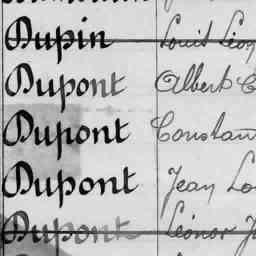 Dupin Louis Léon
Dupont Albert
Dupont Constan
Dupont Jean Lo
Dupont Léonor